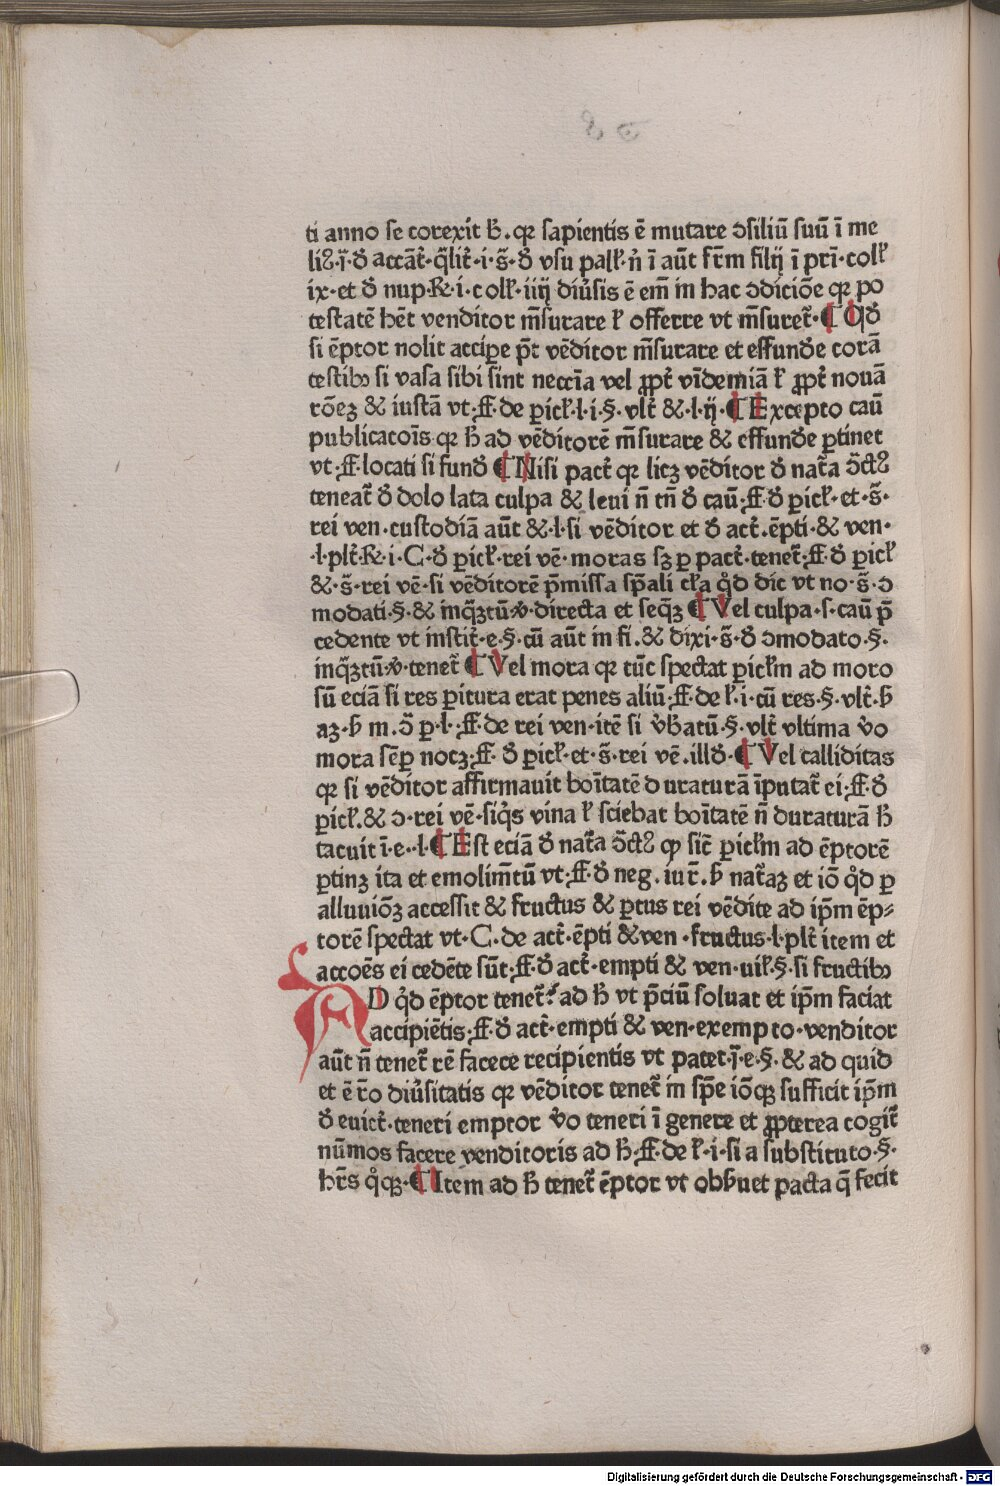 ti anno se corexit ħ. qꝛ sapientis ē mutare ↄsiliū suū ī me
liꝰ·ī·đ accāt̄·q̄lit̄·i·s̄·đ vsu palł·n̄ ī aūt fr̄m filij ī pri·colł
ix·et đ nup·℟·i·colł·iiij diūsis ē em̄ in hac ↄdiciōe qꝛ po
testatē hēt venditor m̄surare ł offerre vt m̄suret̄·¶ Qđ
si ēptor nolit accipe p̄t vēditor m̄surare et effunđe corā
testibꝫ si vasa sibi sint neccīa vel ꝓpt̄ vīdemiā ł ꝓpt̄ nouā
rōeꝫ & iustā vt·ff·de ꝑicł·l·i·§·vlt̄ &·l·ij·¶ Excepto caū
publicatoīs qꝛ ħ ad vēditorē m̄surare & effunđe ꝑtinet
vt·ff·locati si funđ ¶ Nisi pact̄ qꝛ licꝫ vēditor đ nat̄a ↄ̄ctꝰ
teneat̄ đ dolo lata culpa & leui n̄ tn̄ đ caū·ff·đ ꝑicł·et·s̄·
rei ven·custodiā aūt &·l·si vēditor et đ act̄·ēpti·& ven·
·l·plt̄·℟·i·C·đ ꝑicł·rei vē·moras sꝫ ꝑ pact̄·tenet̄·ff·đ ꝑicł
&·s̄·rei vē·si vēditorē p̄missa sp̄ali cła q̊d dic vt no·s̄·ↄ
modati·§·& inq̄ꝫtū·ꝟ·directa et seq̄ꝫ ¶ Vel culpa·s·caū p̄
cedente vt instit̄·e·§·cū aūt in fi·& dixi·s̄·đ ↄmodato·§·
inq̄ꝫtū·ꝟ·tenet̄ ¶ Vel mora qꝛ tūc spectat ꝑicłm ad moro
sū eciā si res ꝑitura erat penes aliū·ff·de ł·i·cū res·§·vlt̄·ƀ
aꝫ·ƀ m·ↄ̄ ꝑ·l·ff·de rei ven·itē si v̊batū·§·vlt̄ vltima v̊o
mora semꝑ nocꝫ·ff· đ ꝑicł·et·s̄·rei vē·illđ·¶ Vel calliditas
qꝛ si vēditor affirmauit boītatē duraturā īputat̄ ei·ff·đ
ꝑicł·& ↄ·rei vē·siq̊s vina ł sciebat boītatē n̄ duraturā ħ
tacuit ī·e··l·¶ Est eciā đ nat̄a ↄ̄ctꝰ ꝙ sic̄ ꝑicłm ad ēptorē
ꝑtinꝫ ita et emolimētū vt·ff·đ neg·iur̄·ƀ nat̄aꝫ et iō q̊d ꝑ
alluuiōꝫ accessit & fructus & ꝑtus rei vēdite ad ip̄m ēp⸗
torē spectat vt·C·de act̄·ēpti &ven·fructus·l·plt̄ item et
accoēs ei cedēte sūt·ff·đ act̄·empti & ven·uił·§·si fructibꝫ
AD q̊d ēptor tenet̄·ad ħ vt p̄ciū soluat et ip̄m faciat
accipiētis·ff·đ act̄·empti & ven·exempto·venditor
aūt n̄ tenet̄ rē facece recipientis vt patet·ī·e·§·& ad quid
et ē r̄o diūsitatis qꝛ vēditor tenet̄ in sp̄e iōqꝫ sufficit ip̄m
đ euict̄·teneri emptor v̊o teneri ī genere et ꝓpterea cogit̄
nūmos facere venditoris ad ħ·ff·de ł·i·si a substituto·§·
hr̄s q̊qꝫ·¶ Item ad ħ tenet̄ ēptor vt obƀuet pacta q̄ fecit
Digitalisierung gefördert durch die Deutsche Forschungsgemeinschaft - DFG